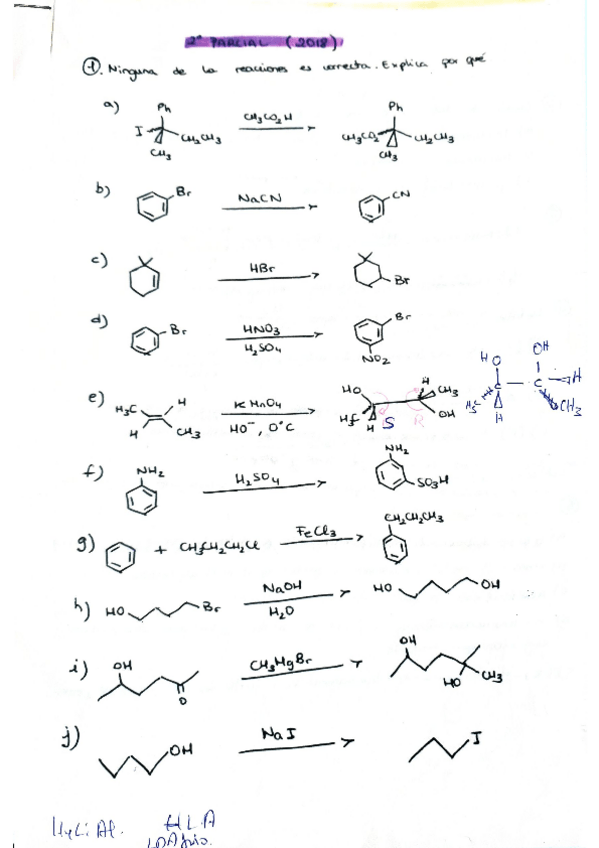 2º PARCIAL (2018)
1. Ninguna de la reacciones es correcta. Explica por qué
a) Ph I CH2CH3 CH3 CH3CO2H Ph CH3CO2 CH2CH3 CH3
b) Br NaCN CN
c) HBr Br
d) Br HNO3 H2SO4 Br NO2
e) H3C H H CH3 KMnO4 HO-, 0ºC HO H3C H S H CH3 OH R
HO OH H3C C C H H CH3
f) NH2 H2SO4 NH2 SO3H
g) + CH3CH2CH2Cl FeCl3 CH2CH2CH3
h) HO Br NaOH H2O HO OH
i) OH O CH3MgBr OH HO CH3
j) OH NaI I
H4LiAl. HLA